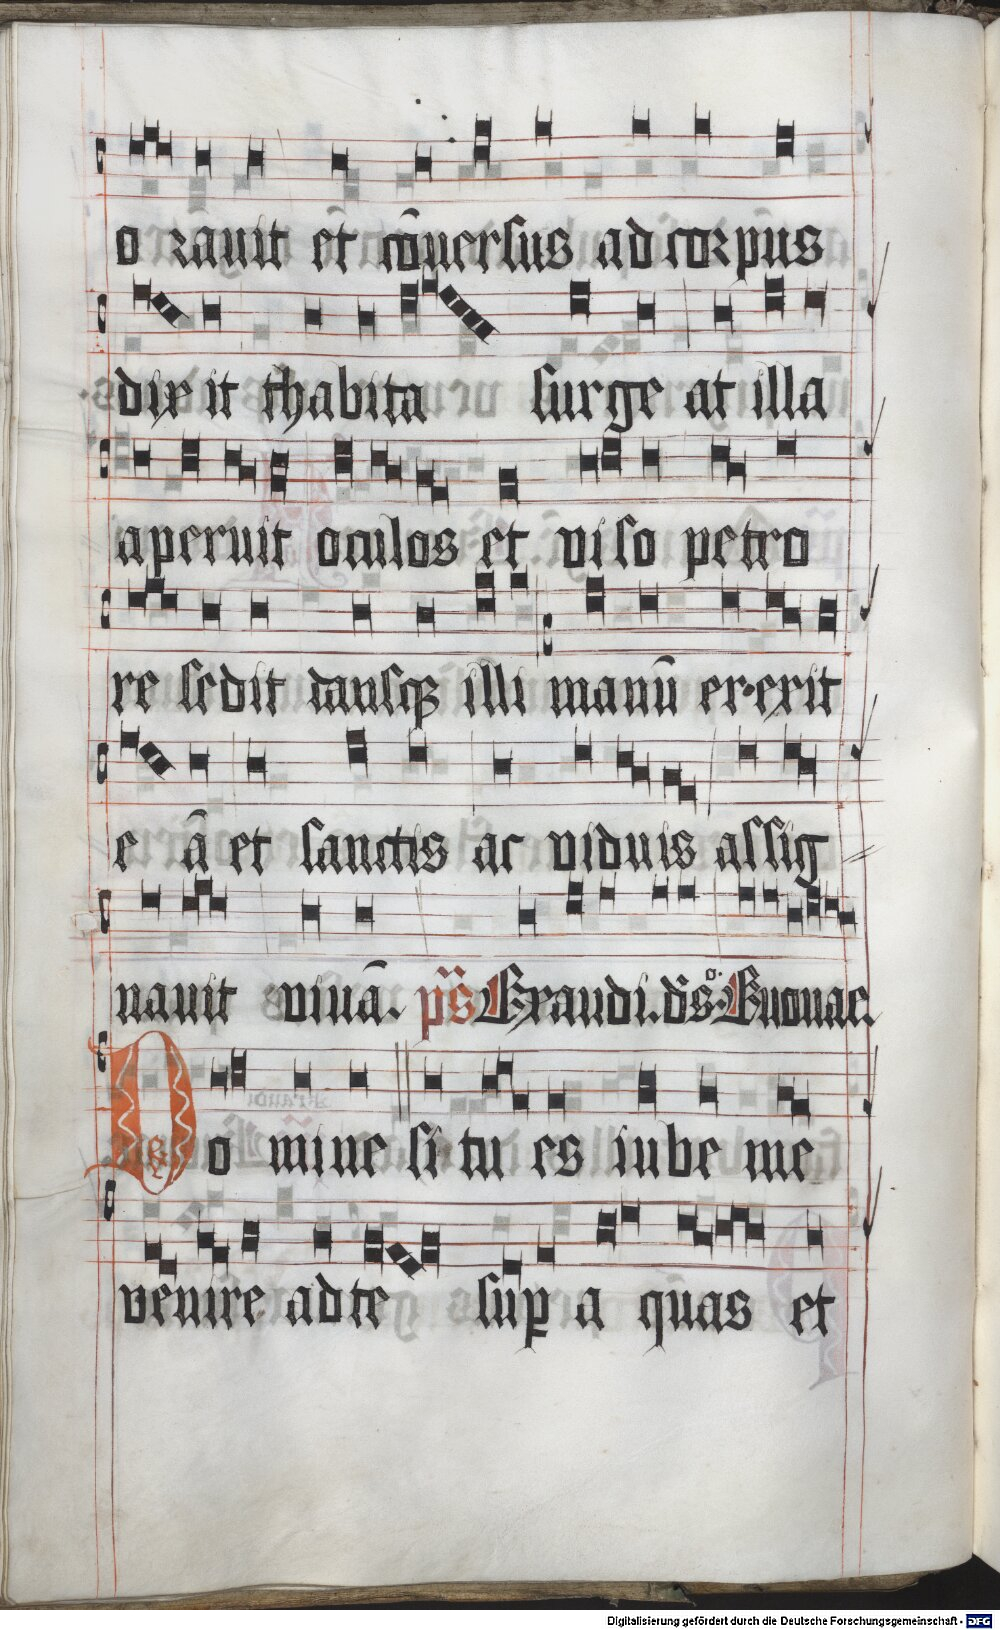 o rauit et cōuersus ad corpus
dix it thabita surge at illa
aperuit oculos et viso petro
re sedit dansqȝ illi manū er-exit
e ā et sanctis ac viduis assig
nauit viuā. ps̄ Exaudi. dn̄s. Euouae.
Do mine si tu es iube me
venire ad te sup a quas et
Digitalisierung gefördert durch die Deutsche Forschungsgemeinschaft - DFG